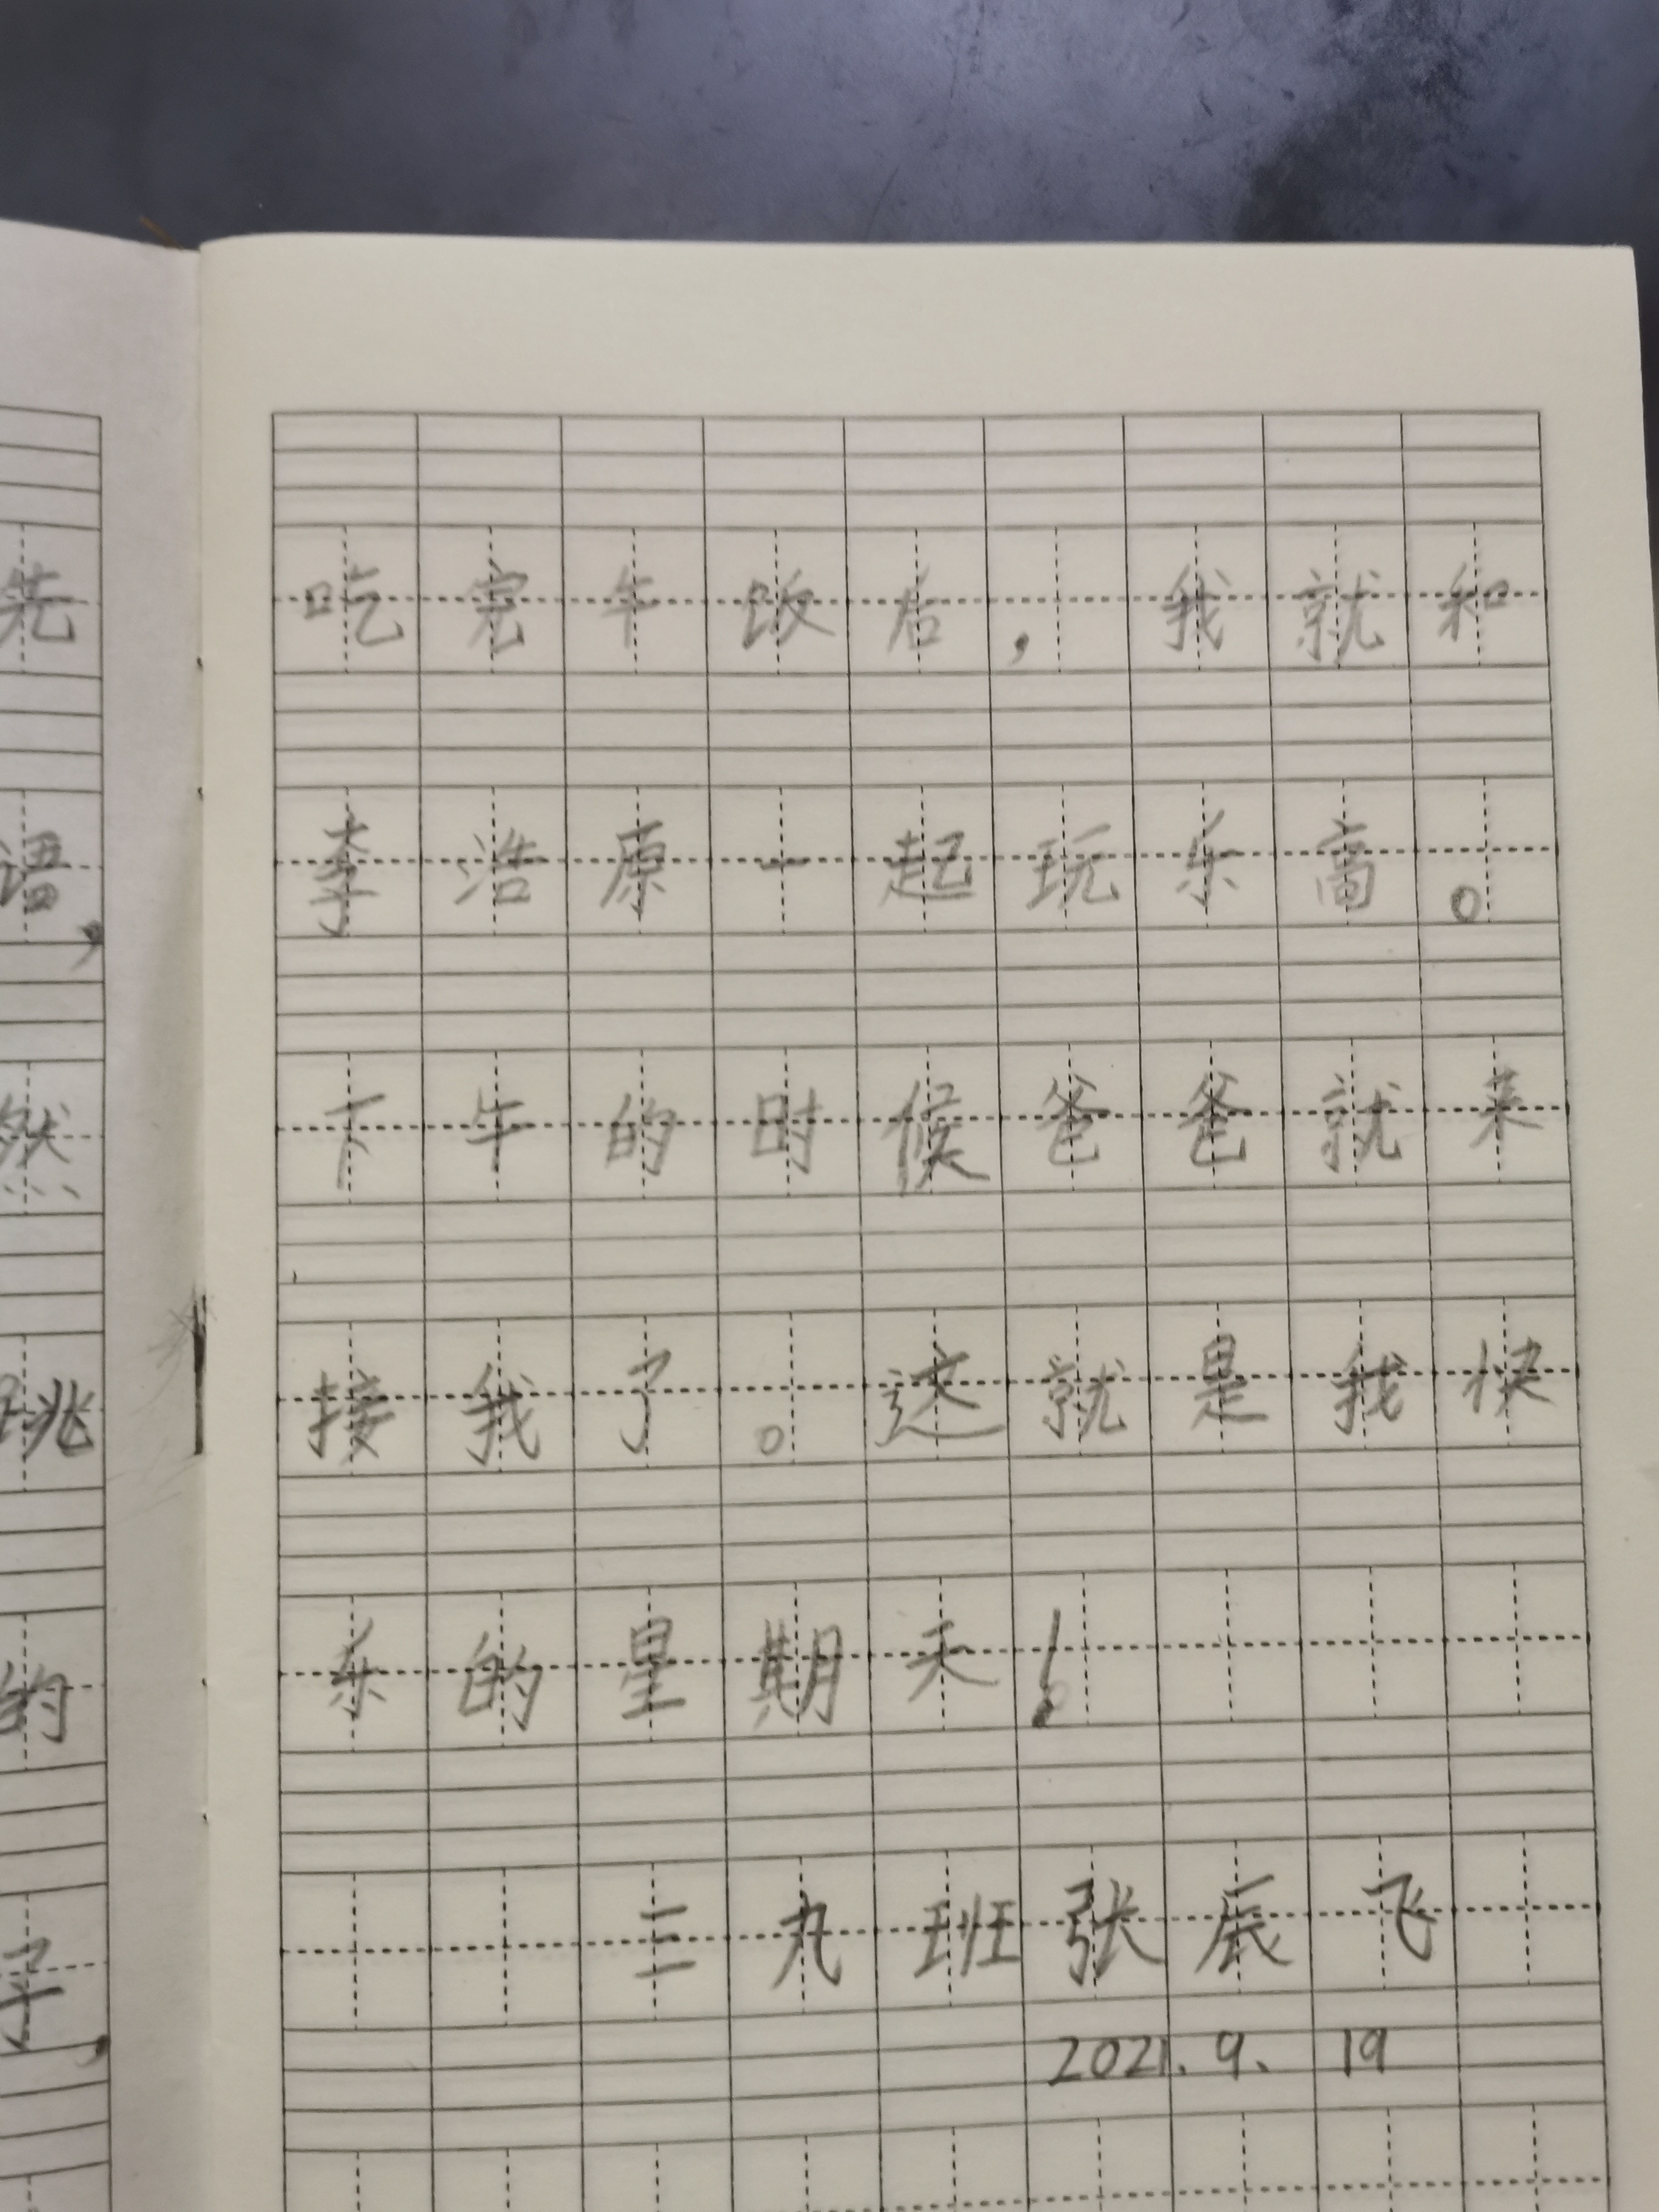 吃完午饭后，我就和
李浩原一起玩乐高。
下午的时候爸爸就来
接我了。这就是我快
乐的星期天！
三九班张辰飞
2021.9.19
先
语，
然
跳
的
子，